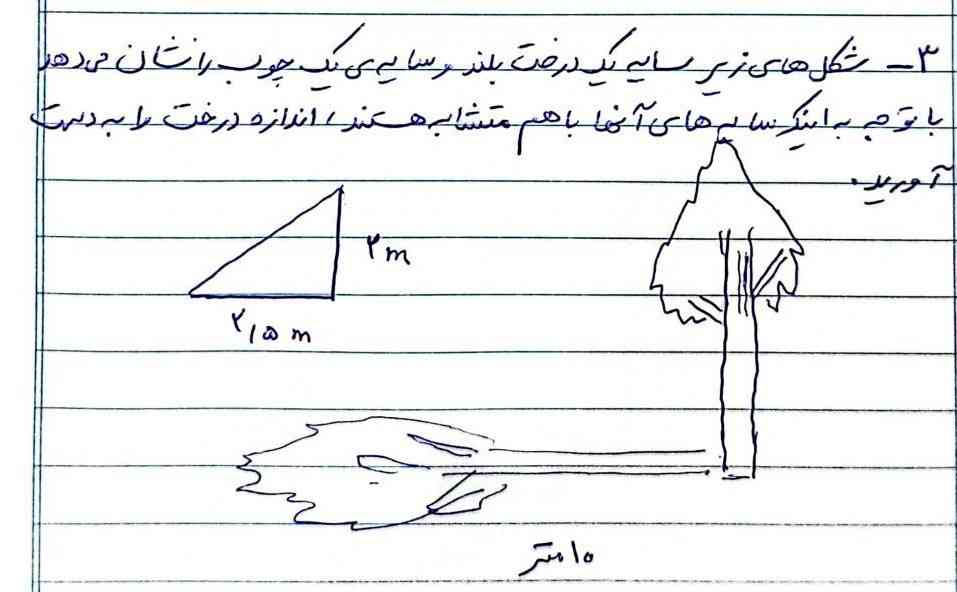 ۳- شکل‌های زیر سایه یک درخت بلند و سایه‌ی یک چوب را نشان می‌دهد
با توجه به اینکه سایه‌های آنها با هم متشابه هستند، اندازه درخت را به دست
آورید.
۲m
۲,۵ m
۱۰ متر